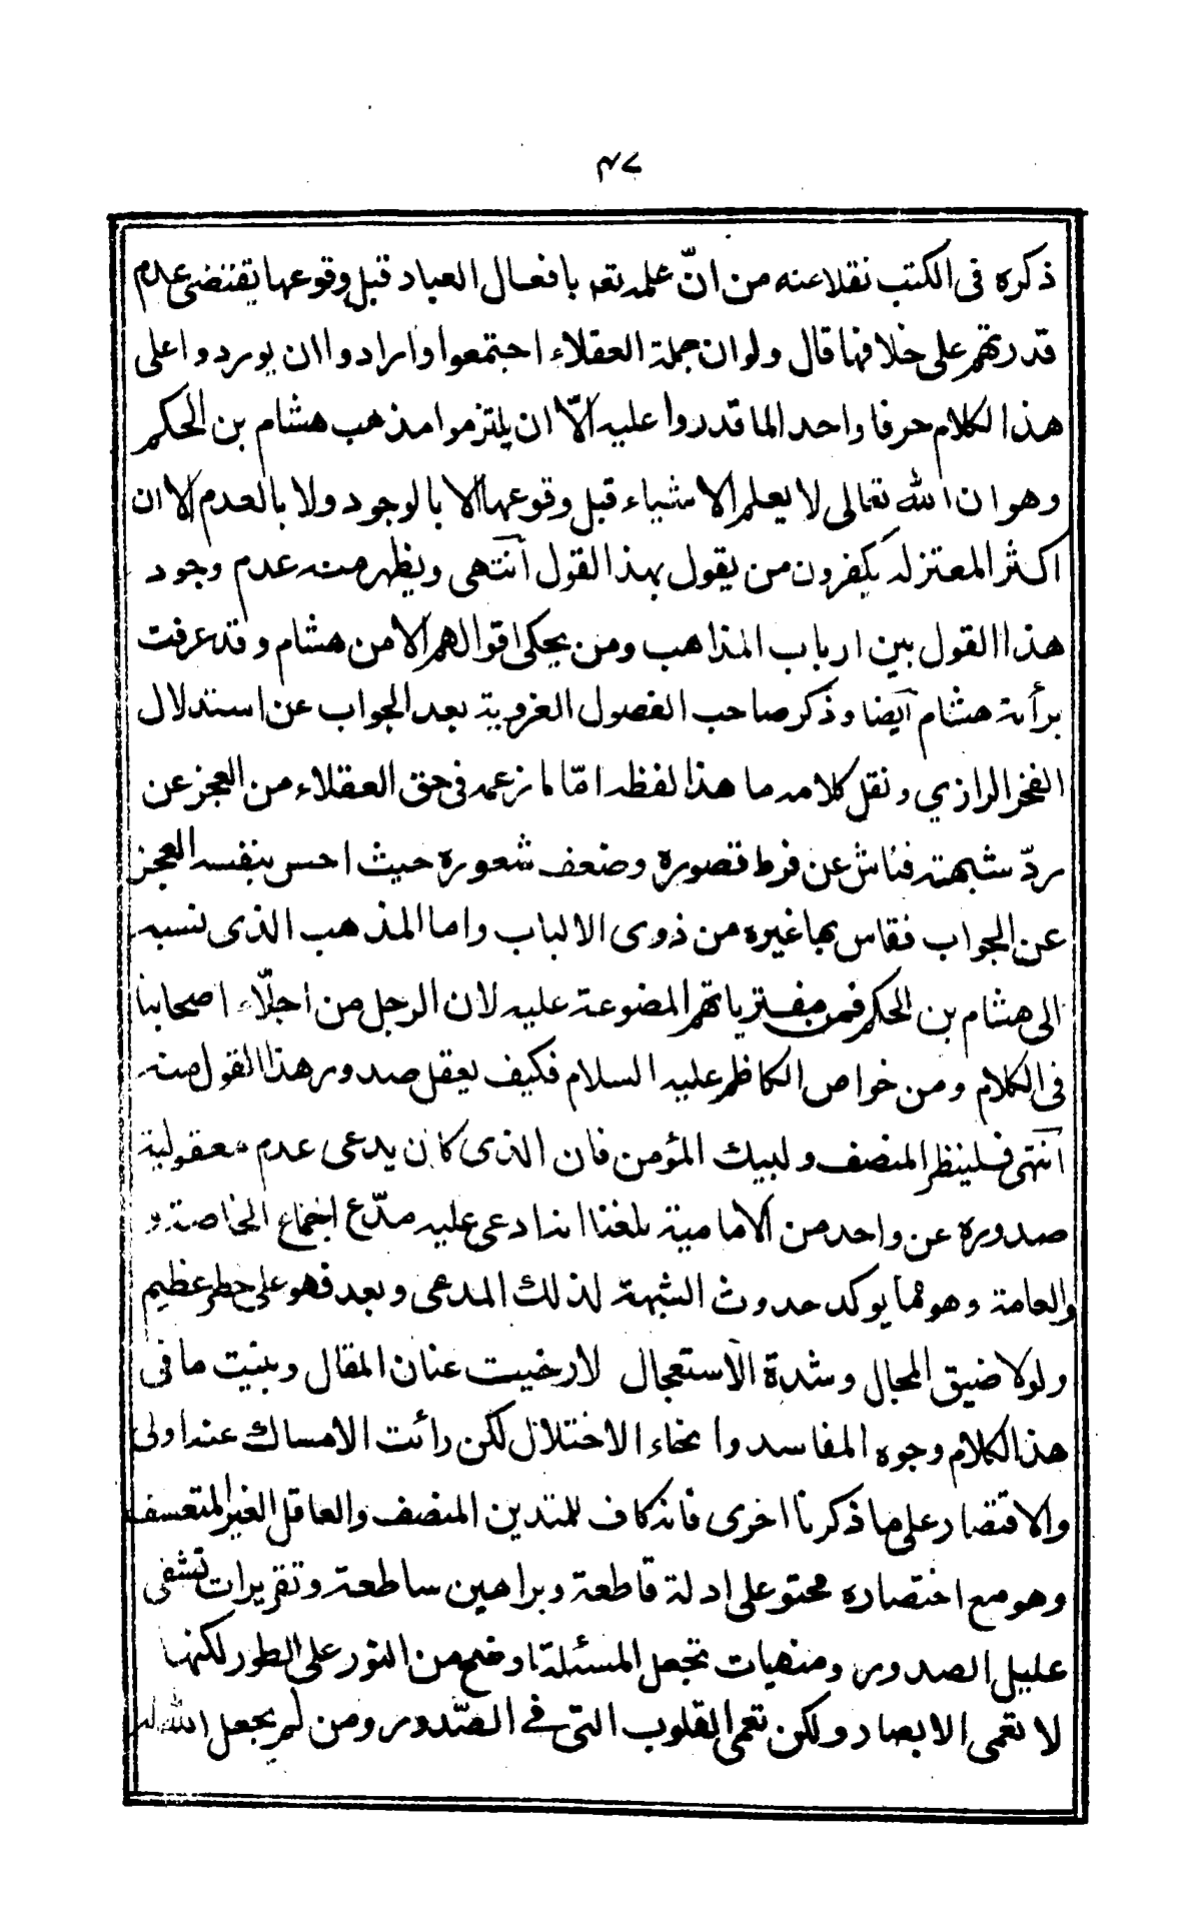 ٤٧
ذكره فى الكتب نقلا عنه من انّ علمه تعه بافعال العباد قبل وقوعها يقتضى عدم
قدرتهم على خلافها قال ولو ان جملة العقلاء اجتمعوا وارادوا ان يوردوا على
هذا الكلام حرفا واحدا لما قدروا عليه الّا ان يلتزموا مذهب هشام بن الحكم
وهو ان الله تعالى لا يعلم الاشياء قبل وقوعها لا بالوجود ولا بالعدم الا ان
اكثر المعتزله يكفرون من يقول بهذا القول انتهى ويظهر منه عدم وجود
هذا القول بين ارباب المذاهب ومن يحكى اقوالهم الا من هشام وقد عرفت
برأئة هشام ايضا وذكر صاحب الفصول الغروية بعد الجواب عن استدلال
الفخر الرازي ونقل كلامه ما هذا لفظه امّا ما زعمه فى حق العقلاء من العجز عن
ردّ شبهته فناش عن فرط قصوره وضعف شعوره حيث احس بنفسه العجز
عن الجواب فقاس بها غيره من ذوى الالباب واما المذهب الذى نسبه
الى هشام بن الحكم فمن مفترياتهم المضوعة عليه لان الرجل من اجلّاء اصحابنا
فى الكلام ومن خواص الكاظم عليه السلام فكيف يعقل صدور هذا القول منه
انتهى فلينظر المنصف ولبيك المؤمن فان الذى كان يدعى عدم معقولية
صدوره عن واحد من الامامية بلغنا انه ادعى عليه مدّع اجماع الخاصة و
والعامة وهو مما يوكد حدوث الشبهة لذلك المدعى وبعد فهو على خطر عظيم
ولولا ضيق المجال وشدة الاستعجال لارخيت عنان المقال وبينت ما فى
هذا الكلام وجوه المفاسد وانحاء الاختلال لكن رائت الامساك عنه اولى
والاقتصار على ما ذكرنا اخرى فانه كاف للمتدين المنصف والعاقل الغير المتعسف
وهو مع اختصاره محتو على ادلة قاطعة وبراهين ساطعة وتقريرات تشفى
عليل الصدور ومنهيات تجعل المسئلة اوضح من النور على الطور لكنها
لا تعمى الابصار ولكن تعمى القلوب التى فى الصّدور ومن لم يجعل الله له